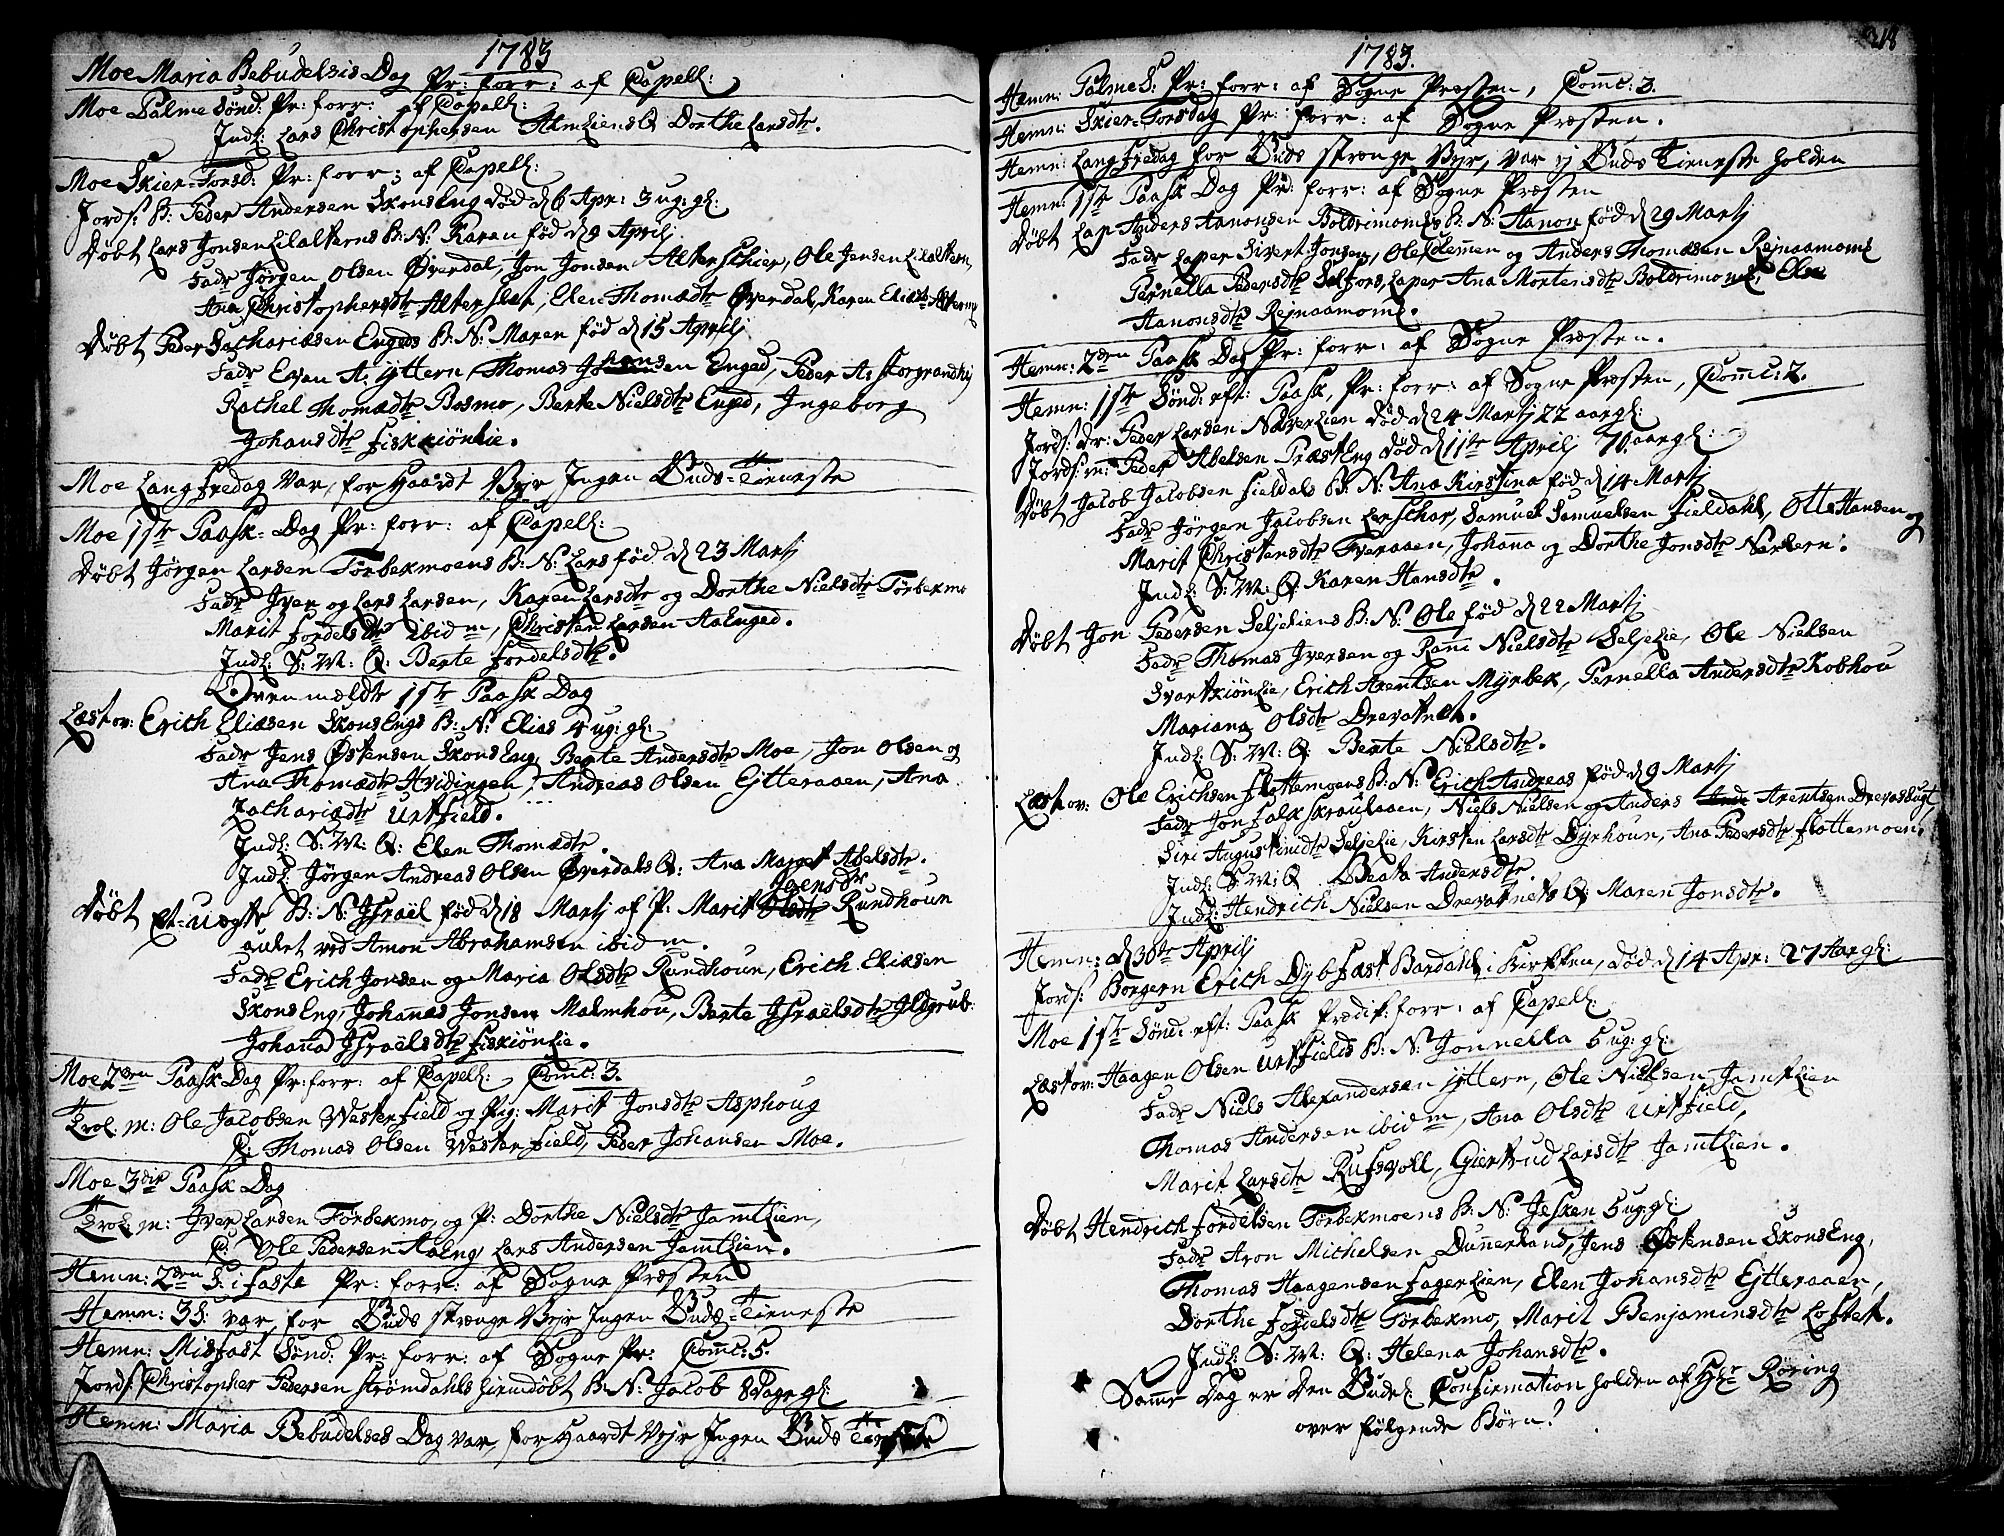 1783
Moe Maria Bebudelsis Dag Pr: forr: af Capell:
Moe Palme Sønd: Pr: forr: af Capell:
Indl: Lars Christophersen Dorthe Larsdtr.
Moe Skier-Torsd: Pr: forr: af Capell:
Jords: B: Peder Andersen SkonsEng død d 6 Apr: 3 ug: gl:
Døbt Lars Jonsen Lilalterns B: N: Karen fød d 9 Aprilj
Fadr Jørgen Olsen Øverdal, Jon Jonsen Ole Jensen Lilaltern,
Ana Christophersdtr Elen Thomædtr Øverdal, Karen
Døbt Peder Sachariæsen Engeds B: N: Maren fød d 15 Aprilj
Fadr Even A: Yttern, Thomas Enged, Peder A:
Rachel Thomædtr Bosmo, Berte Nielsdtr Enged, Ingeborg
Johansdtr Fiskiønlie.
Moe Langfredag var, for Haardt Vejr Ingen Guds-Tieneste
Moe 1ste Paask-Dag Pr: forr: af Capell:
Døbt Jørgen Larsen Tørbekmoens B: N: Lars fød d 23 Martj
Fadr Iver og Lars Larsen, Karen Larsdtr og Dorthe Nielsdtr Tørbekmo
Marit Fordelsdtr ibidm, Christen Larsen AaEnged.
Indl: S: M: Q: Berte Fordelsdtr.
Ovenmeldte 1ste Paask Dag
Læst ov: Erich Eliæsen SkonsEngs B: N: Elias 4 ug: gl:
Fadr Jens Østensen SkonsEng, Berte Andersdtr Moe, Jon Olsen og
Ana Thomædtr Hvidingen, Andreas Olsen Ejtteraaen, Ana
Zachariædtr Urtfield.
Indl: S: M: Q: Elen Thomædtr.
Indl: Jørgen Andreas Olsen Øverdals Q: Ana Margt Abelsdtr.
Døbt et uægte B: N: Israël fød d 18 Martj af P: Marit Joensdtr Rundhoun
aulet ved Amon Abrahamsen ibidm.
Fadr Erich Jonsen og Maria Olsdtr Rundhoun, Erich Eliæsen
SkonsEng, Johanes Jonsen Malmhou, Berte Israëlsdtr Ildgrub.
Johana Israëlsdtr Fiskiønlie.
Moe 2den Paask Dag Pr: forr: af Capell: Comc: 3.
Trol: m: Ole Jacobsen Westerfield og Pig: Marit Jonsdtr Asphoug
C: Thomas Olsen Westerfield, Peder Johansen Moe.
Moe 3die Paask Dag
Trol: m: Iver Larsen Tørbekmo, og P: Dorthe Nielsdtr Jamtlien,
C: Ole Pedersen AaEng, Lars Andersen Jamtlien.
Hemn: 2den S: i Faste Pr: forr: af Sogne Præsten
Hemn: 3 S: var, for Guds strænge Vejr Ingen Guds-Tieneste
Hemn: Midfast Sønd: Pr: forr: af Sogne Pr: Comc: 5.
Jords: Christopher Pedersen Strømdahls hiemdøbt B: N: Jacob 8 Dage gl:
Hemn: Maria Bebudelses Dag var, for Haardt Vejr Ingen Guds
318
1783.
Hemn: Palme S: Pr: forr: af Sogne Præsten, Comc: 3.
Hemn: Skier-Torsdag Pr: forr: af Sogne Præsten.
Hemn: Langfredag for Guds strænge Vejr, var ej Guds Tieneste holden
Hemn: 1ste Paask Dag Pr: forr: af Sogne Præsten
Døbt Lap Anders Aanonsen Boldrimomes B: N: Aanon fød d 29 Martj
Fadr Laper Sivert Jonsen, Ole Clemen og Anders Thomæsen Rejnaamomi
Pernella Pedersdtr Laper Ana Mortensdtr Elen
Aanonsdtr Rejnaamomi.
Hemn: 2den Paask Dag Pr: forr: af Sogne Præsten.
Hemn: 1ste Sønd: eft: Paask, Pr: forr: af Sogne Præsten, Comc: 2.
Jords: Dr: Peder Larsen Næverlien død d 24 Martj 22 aar gl:
Jords: m: Peder Abelsen PræstEng død d 11te Aprilj 70. aar gl:
Døbt Jacob Jacobsen Fieldals B: N: Ana Kirstina fød d 14 Martj
Fadr Jørgen Jacobsen Samuel Samuelsen Fieldahl, Otte Hansen og
Marit Christensdtr Tveraaen, Johana og Dorthe Jonsdtr
Indl: S: M: Q: Karen Hansdtr.
Døbt Jon Pedersen Seljeliens B: N: Ole fød d 22 Martj
Fadr Thomas Iversen og Nielsdtr Seljelie, Ole Nielsen
Svartkiønlie, Erich Arentsen Myrbek, Pernella Andersdtr Kobhou
Mariana Olsdtr Drevatnet.
Indl: S: M: Q: Berte Nielsdtr.
Læst ov: Ole Erichsen Flottemoens B: N: Erich Andreas fød d 9 Martj
Fadr Jon Falk Niels Nielsen og Anders Arentsen
Siri Augustinidtr Seljelie, Kirsten Larsdtr Dyrhoun, Ana Pedersdtr Flottemoen.
Indl: S: M: Q Beata Andersdtr.
Indl: Hendrich Nielsen Drevatnets Q: Maren Jonsdtr.
Hemn: d 30te Aprilj
Jords: Borgern Erich Dybfæst Bardahl i Kirkken, død d 14 Apr: 27 Aar gl:
Moe 1ste Sønd: eft: Paask Prædik: forr: af Capell:
Læst ov: Haagen Olsen Urtfields B: N: Jonnella 6 ug: gl:
Fadr Niels Alexandersen Yttern, Ole Nielsen Jamtlien
Thomas Andersen ibidm, Ana Olsdtr Urtfield,
Marit Larsdtr Giertrud Larsdtr Jamtlien.
Døbt Hendrich Fordelsen Tørbekmoens B: N: Jesken 6 ug: gl:
Fadr Aron Michelsen Dunnerland, Jens Østensen SkonsEng,
Thomas Haagensen Fagerlien, Elen Johansdtr Ejtteraaen,
Dorthe Fordelsdtr Tørbekmo, Marit Benjaminsdtr Loftet.
Indl: S: M: Q: Helena Johansdtr.
Same Dag er den Gudel: Confirmation holden af Hr Røring
over følgende Børn!